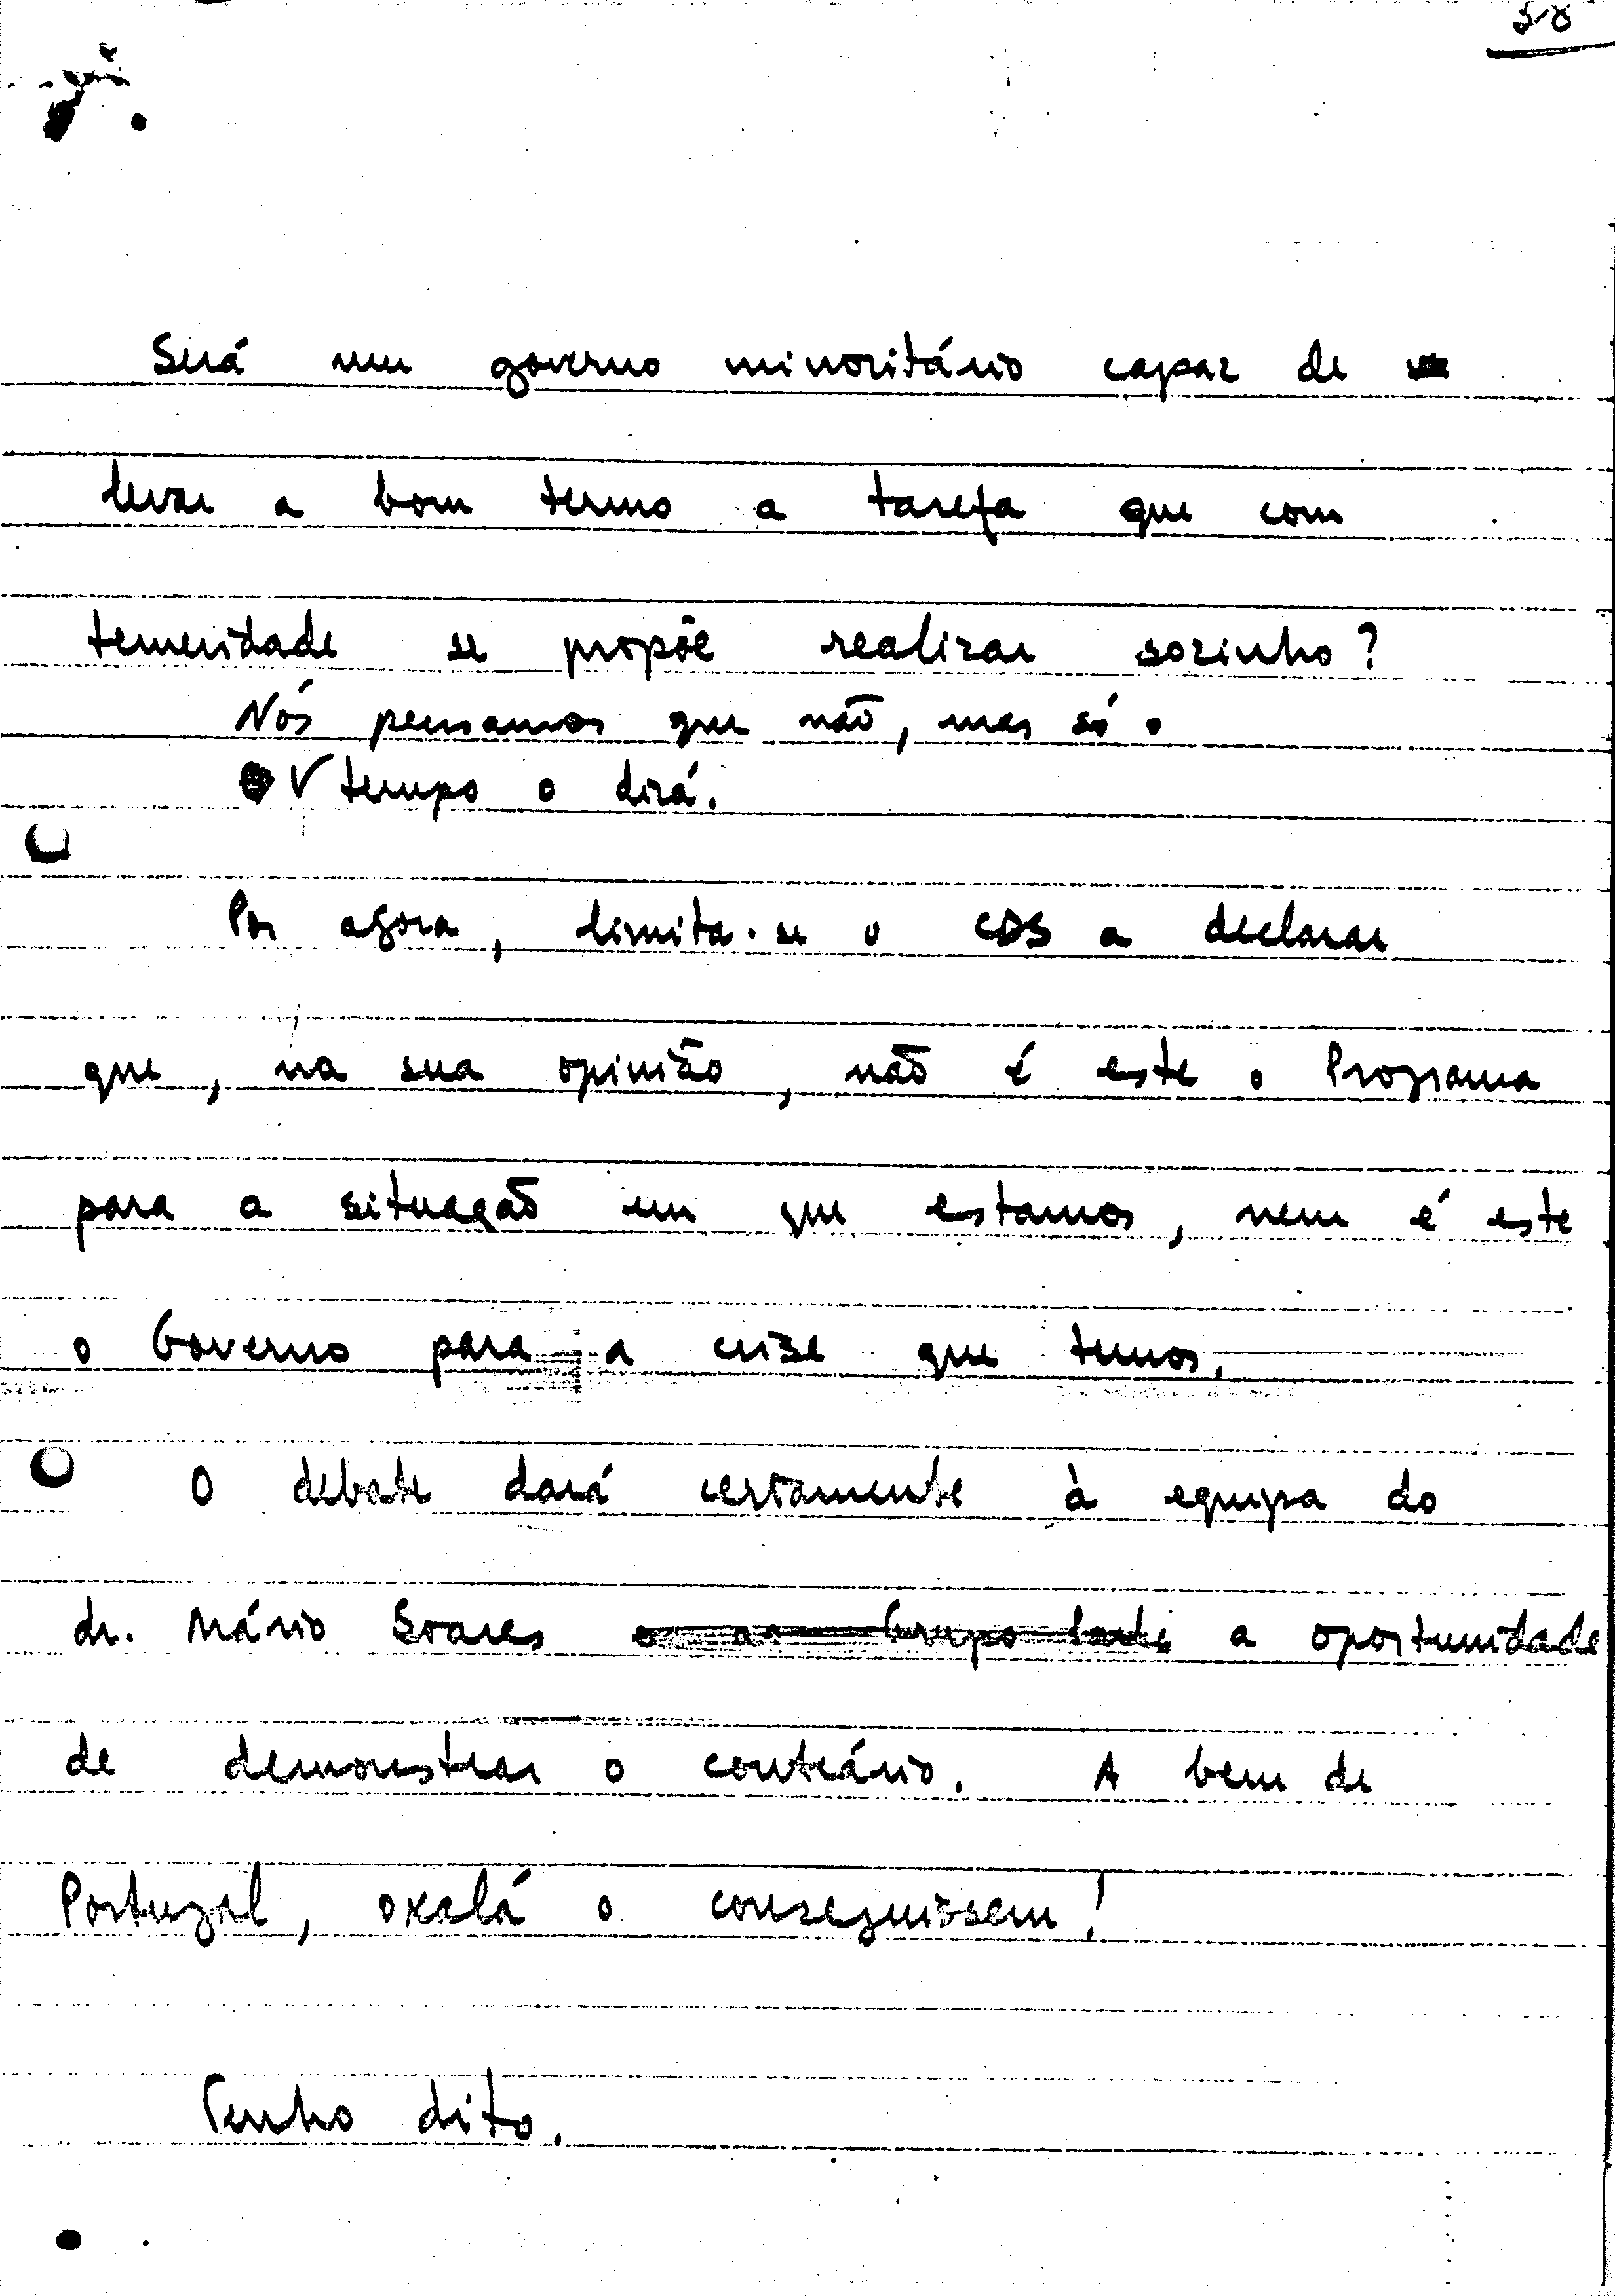 58
Será um governo minoritário capaz de
levar a bom termo a tarefa que com
temeridade se propõe realizar sozinho?
Nós pensamos que não, mas só o
tempo o dirá.
Por agora, limita-se o CDS a declarar
que, na sua opinião, não é este o Programa
para a situação em que estamos, nem é este
o Governo para a crise que temos.
O debate dará certamente à equipa do
dr. Mário Soares a oportunidade
de demonstrar o contrário. A bem de
Portugal, oxalá o conseguissem!
Tenho dito.